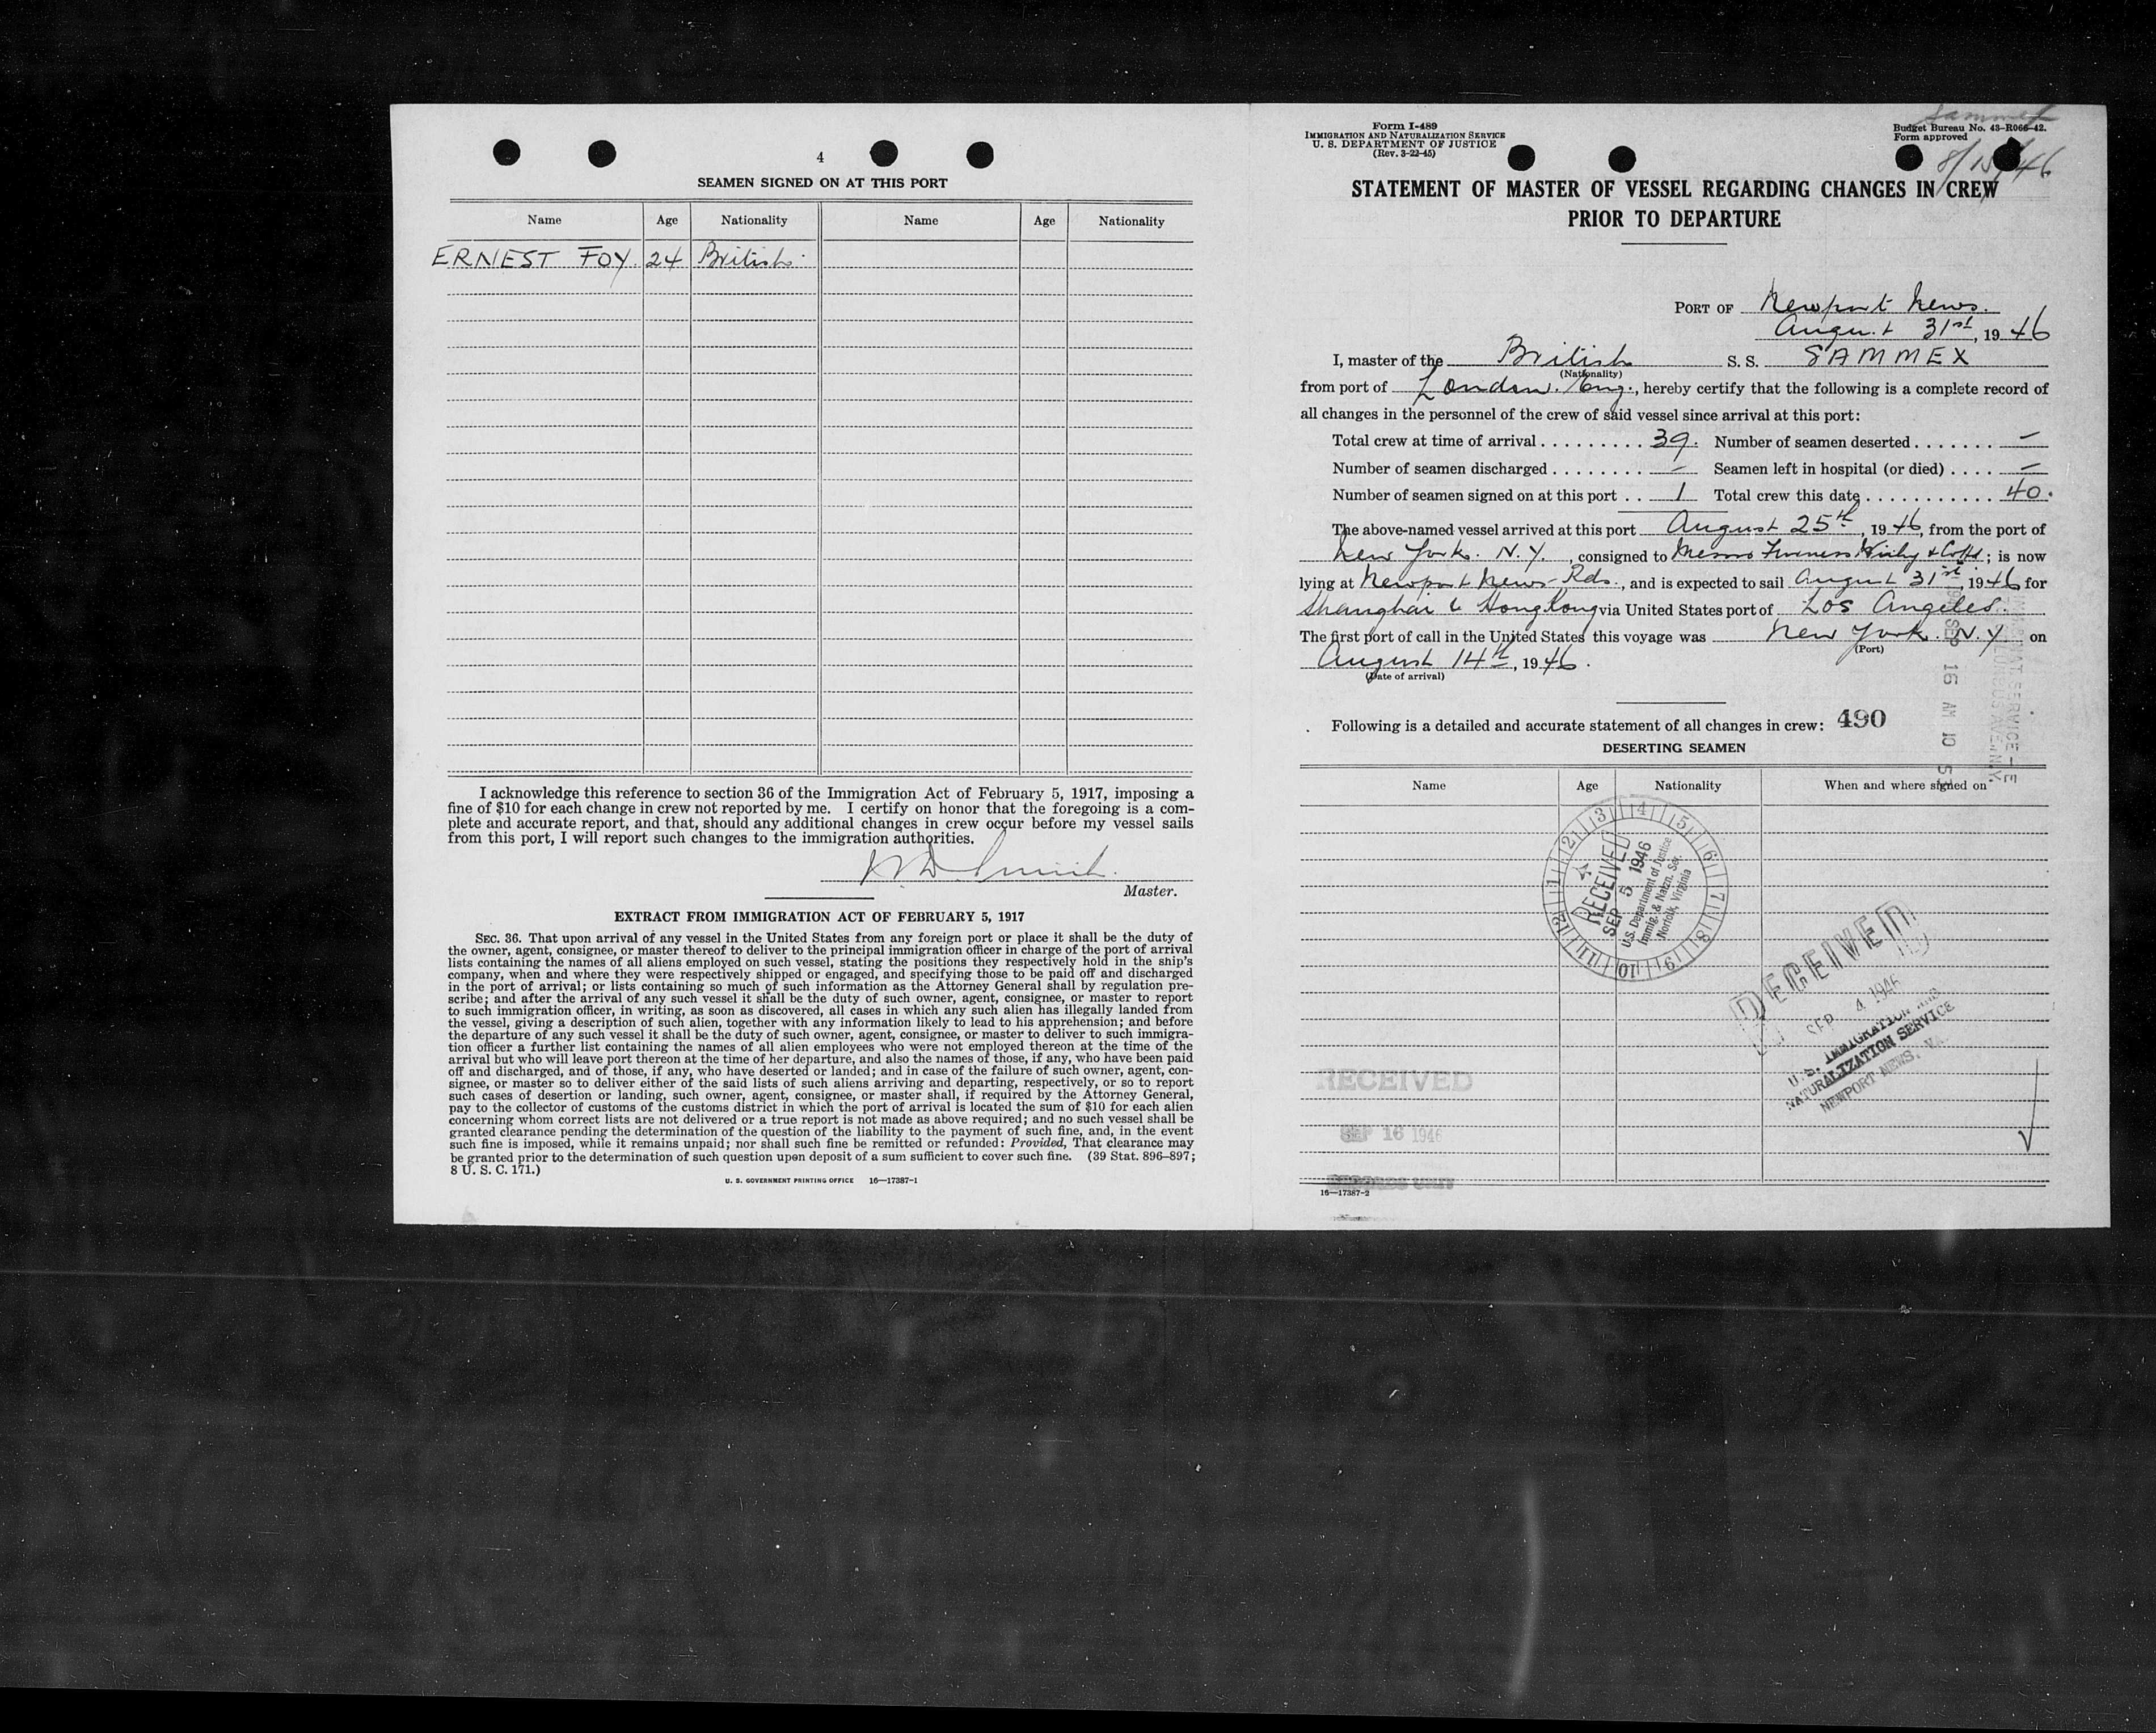 4
SEAMEN SIGNED ON AT THIS PORT
Name Age Nationality Name Age Nationality
ERNEST FOY. 24 British.
I acknowledge this reference to section 36 of the Immigration Act of February 5, 1917, imposing a
fine of $10 for each change in crew not reported by me. I certify on honor that the foregoing is a com-
plete and accurate report, and that, should any additional changes in crew occur before my vessel sails
from this port, I will report such changes to the immigration authorities.
Smith.
Master.
EXTRACT FROM IMMIGRATION ACT OF FEBRUARY 5, 1917
SEC. 36. That upon arrival of any vessel in the United States from any foreign port or place it shall be the duty of
the owner, agent, consignee, or master thereof to deliver to the principal immigration officer in charge of the port of arrival
lists containing the names of all aliens employed on such vessel, stating the positions they respectively hold in the ship's
company, when and where they were respectively shipped or engaged, and specifying those to be paid off and discharged
in the port of arrival; or lists containing so much of such information as the Attorney General shall by regulation pre-
scribe; and after the arrival of any such vessel it shall be the duty of such owner, agent, consignee, or master to report
to such immigration officer, in writing, as soon as discovered, all cases in which any such alien has illegally landed from
the vessel, giving a description of such alien, together with any information likely to lead to his apprehension; and before
the departure of any such vessel it shall be the duty of such owner, agent, consignee, or master to deliver to such immigra-
tion officer a further list containing the names of all alien employees who were not employed thereon at the time of the
arrival but who will leave port thereon at the time of her departure, and also the names of those, if any, who have been paid
off and discharged, and of those, if any, who have deserted or landed; and in case of the failure of such owner, agent, con-
signee, or master so to deliver either of the said lists of such aliens arriving and departing, respectively, or so to report
such cases of desertion or landing, such owner, agent, consignee, or master shall, if required by the Attorney General,
pay to the collector of customs of the customs district in which the port of arrival is located the sum of $10 for each alien
concerning whom correct lists are not delivered or a true report is not made as above required; and no such vessel shall be
granted clearance pending the determination of the question of the liability to the payment of such fine, and, in the event
such fine is imposed, while it remains unpaid; nor shall such fine be remitted or refunded: Provided, That clearance may
be granted prior to the determination of such question upon deposit of a sum sufficient to cover such fine. (39 Stat. 896–897;
8 U. S. C. 171.)
U. S. GOVERNMENT PRINTING OFFICE 16—17387-1
Form I-489
IMMIGRATION AND NATURALIZATION SERVICE
U. S. DEPARTMENT OF JUSTICE
(Rev. 3-22-45)
Sammex
Budget Bureau No. 43-R066-42.
Form approved
8/15/46
STATEMENT OF MASTER OF VESSEL REGARDING CHANGES IN CREW
PRIOR TO DEPARTURE
PORT OF Newport News.
August 31st, 1946
I, master of the British S. S. SAMMEX
(Nationality)
from port of London. Eng., hereby certify that the following is a complete record of
all changes in the personnel of the crew of said vessel since arrival at this port:
Total crew at time of arrival ......... 39. Number of seamen deserted ....... —
Number of seamen discharged ........ — Seamen left in hospital (or died) .... —
Number of seamen signed on at this port .. 1 Total crew this date ........... 40.
The above-named vessel arrived at this port August 25th, 1946, from the port of
New York. N.Y., consigned to Messrs Furness Withy & Co Ltd; is now
lying at Newport News Rds., and is expected to sail August 31st, 1946 for
Shanghai & Hong Kong via United States port of Los Angeles.
The first port of call in the United States this voyage was New York. N.Y on
(Port)
August 14th, 1946.
(Date of arrival)
Following is a detailed and accurate statement of all changes in crew: 490
DESERTING SEAMEN
Name Age Nationality When and where signed on
SEP 16 AM 10 53
RECEIVED
SEP 5 1946
U.S. Department of Justice
Immig. & Natzn. Ser.
Norfolk, Virginia
1 2 3 4 5 6 7 8 9 10 11 12
RECEIVED
SEP 4 1946
U. S. IMMIGRATION AND
NATURALIZATION SERVICE
NEWPORT NEWS, VA.
RECEIVED
SEP 16 1946
RECORDS UNIT
16—17387-2